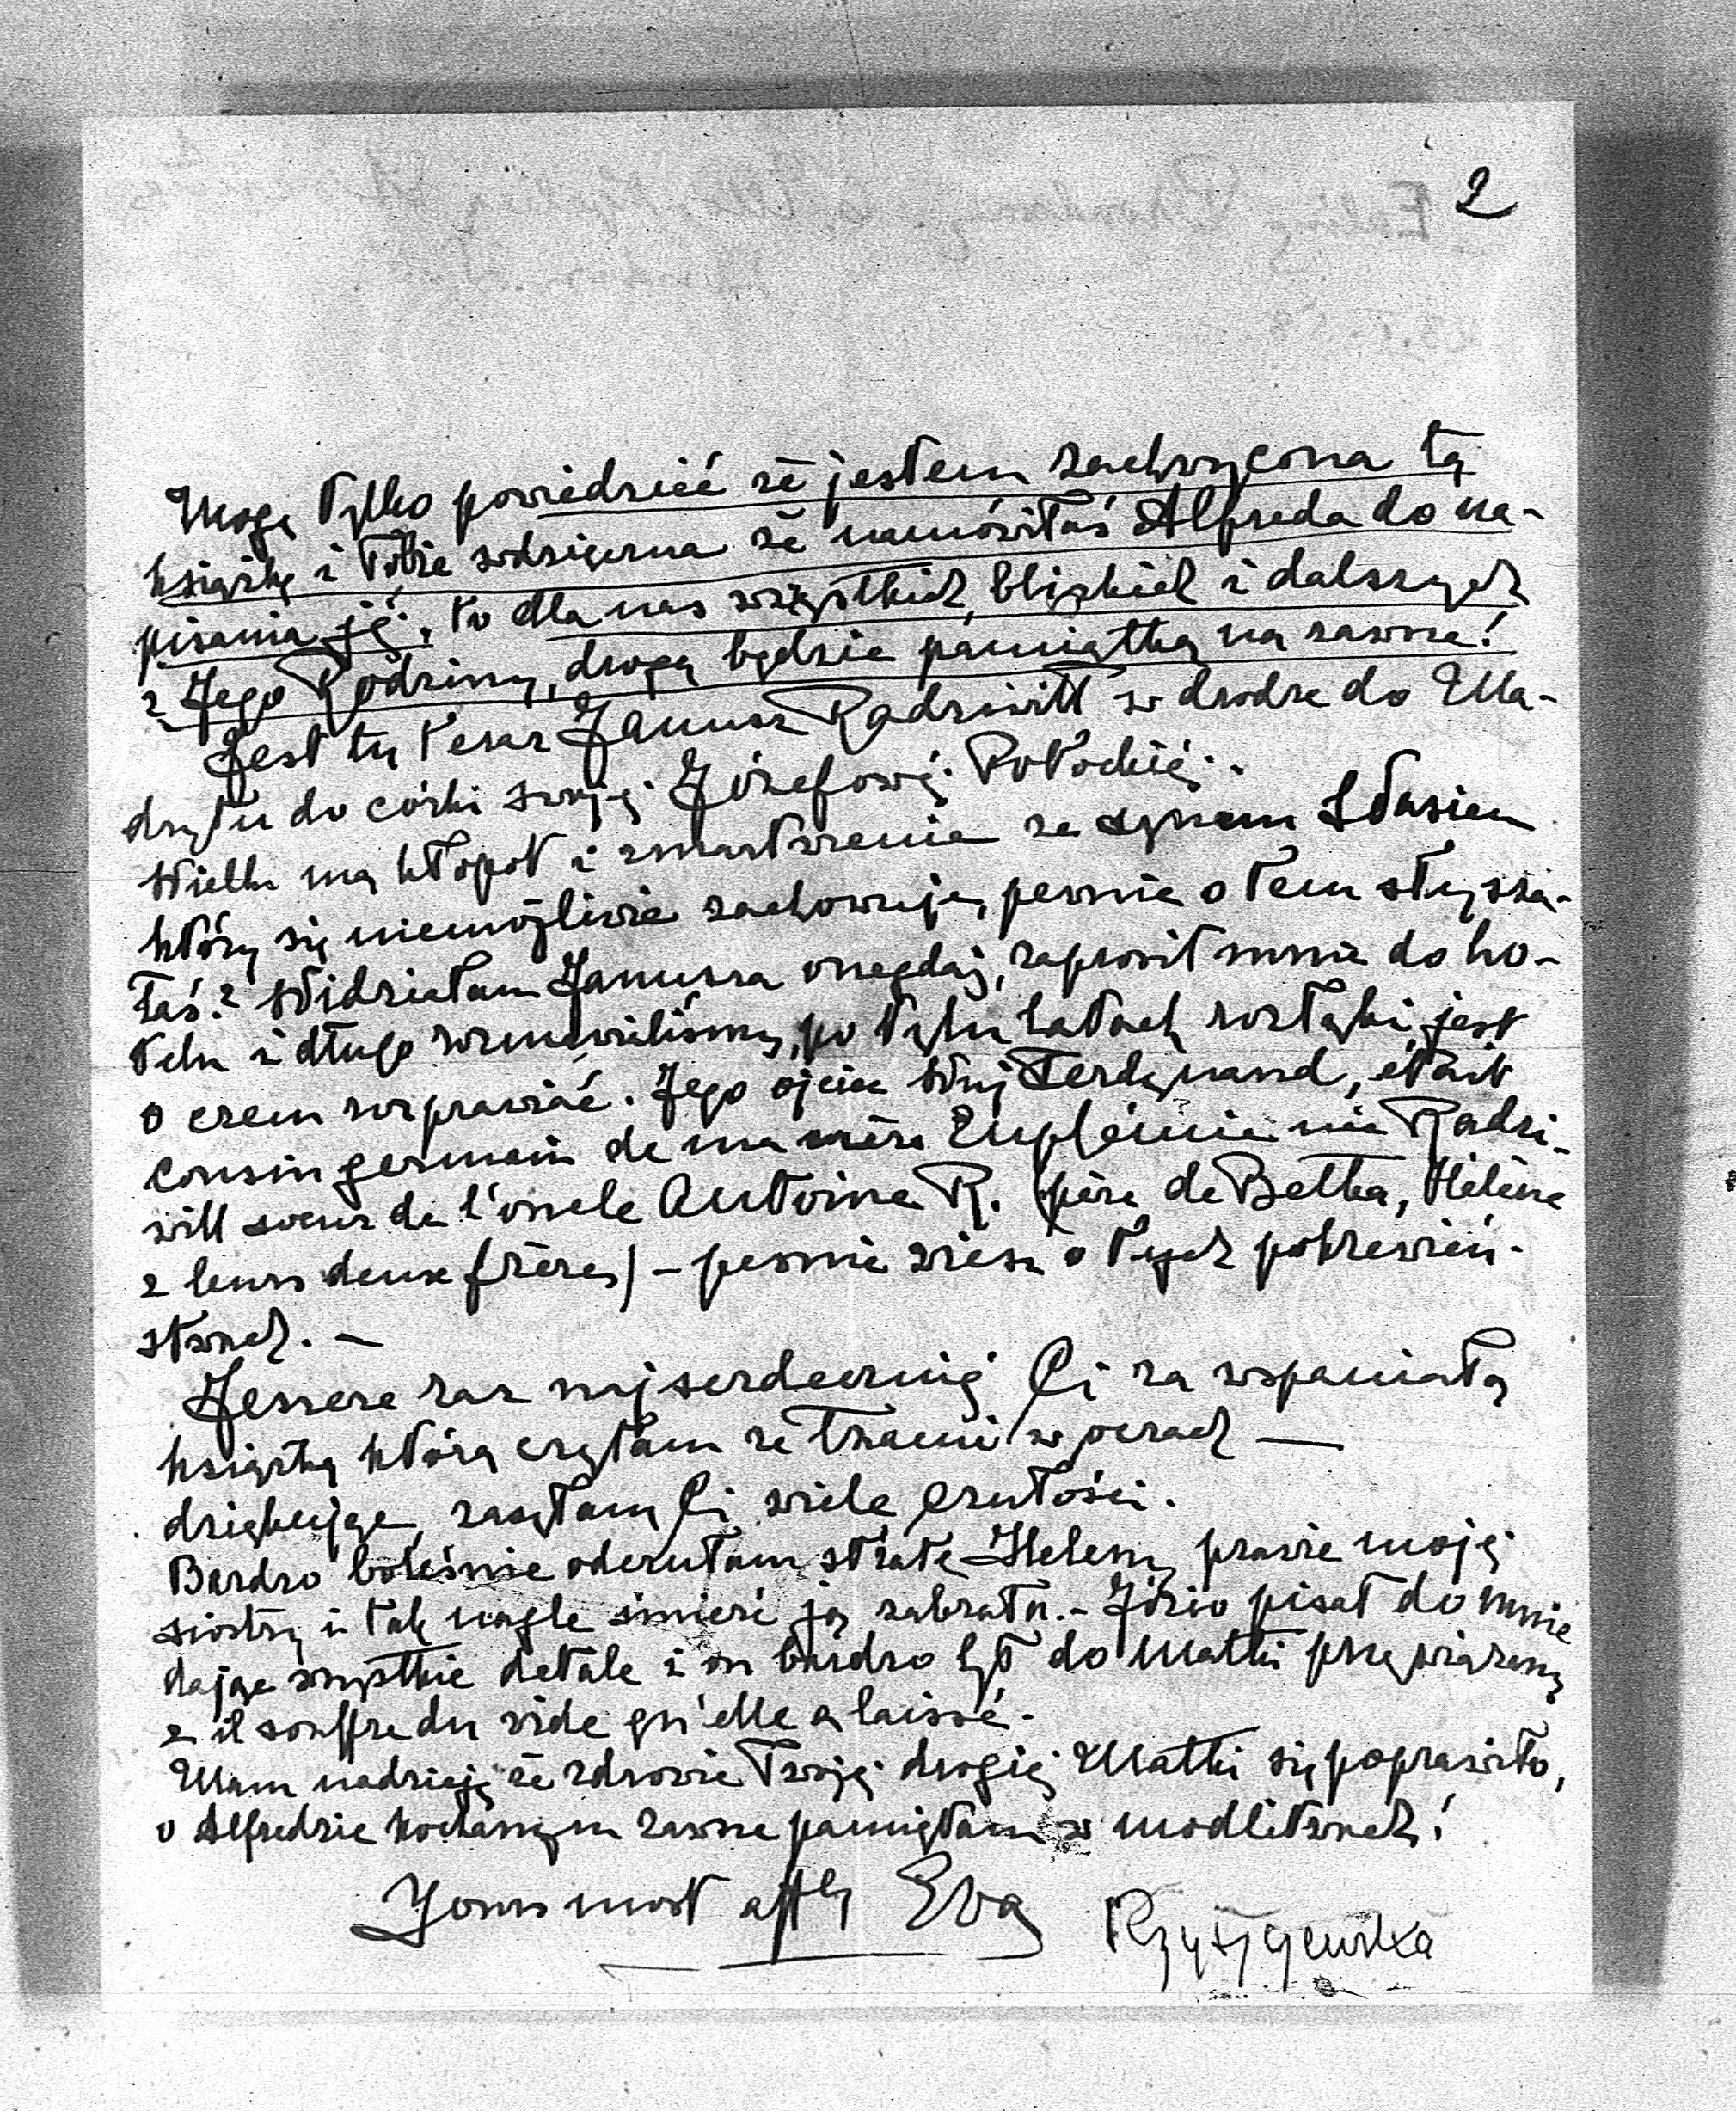 2
Mogę tylko powiedzieć że jestem zachwycona tą
książką i Tobie wdzięczna że namówiłaś Alfreda do na-
pisania jéj, to dla nas wszystkich, bliskich i dalszych
z Jego Rodziny, drogą będzie pamiątką na zawsze!
Jest tu teraz Janusz Radziwiłł w drodze do Ma-
drytu do córki swojéj Józefowéj Potockiéj.
Wielki ma kłopot i zmartwienie ze synem Stasiem
który się niemożliwie zachowuje, pewnie o tem słysza-
łaś? Widziałam Janusza onegdaj, zaprosił mnie do ho-
telu i długo rozmawialiśmy, po tylu latach rozłąki jest
o czem rozprawiać. Jego ojciec Wuj Ferdynand, était
cousin germain de ma mère Euphémie née Radzi-
will soeur de l'oncle Antoine R. (père de Betka, Hélène
& leurs deux frères) – pewnie wiesz o tych pokrewień-
stwach. –
Jeszcze raz najserdeczniéj Ci za wspaniałą
książkę którą czytam ze łzami w oczach —
dziękując, zasyłam Ci wiele czułości.
Bardzo boleśnie odczułam stratę Heleny, prawie mojéj
siostry i tak nagle śmierć ją zabrała. – Józio pisał do mnie
dając wszystkie detale i on bardzo był do Matki przywiązany
& il souffre du vide qu'elle a laissé.
Mam nadzieję że zdrowie Twojéj drogiéj Matki się poprawiło,
o Alfredzie kochanym zawsze pamiętam w modlitwach!
Yours most affly Eva